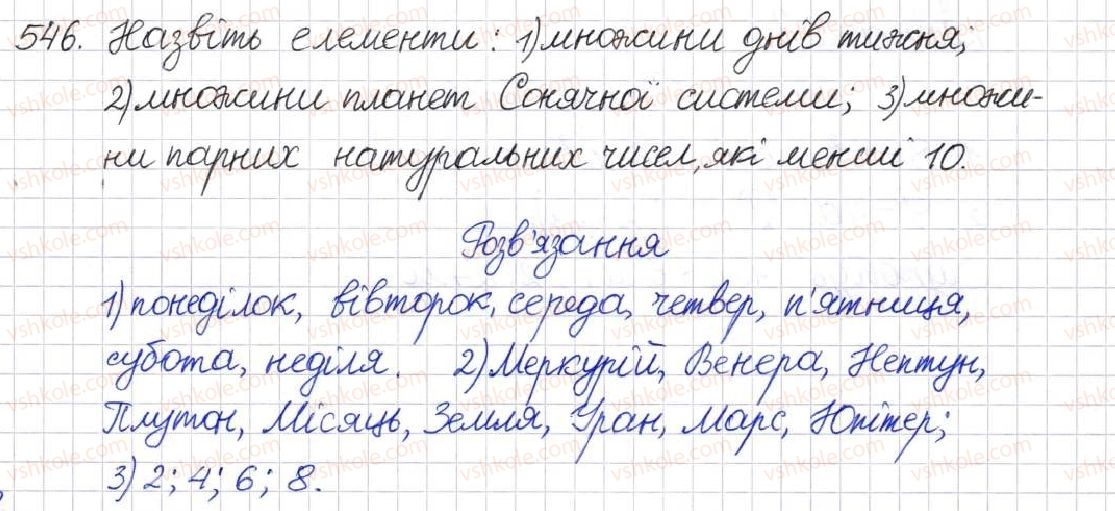 546. Назвіть елементи: 1) множини днів тижня;
2) множини планет Сонячної системи; 3) множи-
ни парних натуральних чисел, які менші 10.
Розв'язання
1) понеділок, вівторок, середа, четвер, п'ятниця,
субота, неділя. 2) Меркурій, Венера, Нептун,
Плутон, Місяць, Земля, Уран, Марс, Юпітер;
3) 2; 4; 6; 8.